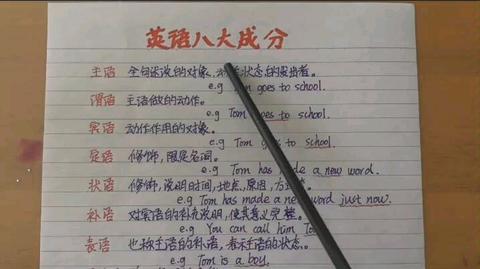 英语八大成分
主语 全句述说的对象, 状态的发出者。
e.g Tom goes to school.
谓语 主语做的动作。
e.g Tom goes to school.
宾语 动作作用的对象。
e.g Tom to school.
定语 修饰, 限定名词。
e.g Tom has made a new word.
状语 修饰, 说明时间, 地点, 原因, 方
e.g Tom has made a new word just now.
补语 对宾语的补充说明, 使其意义完整。
e.g. You can call him
表语 也称主语的补语, 表示主语的状态。
e.g. Tom is a boy.